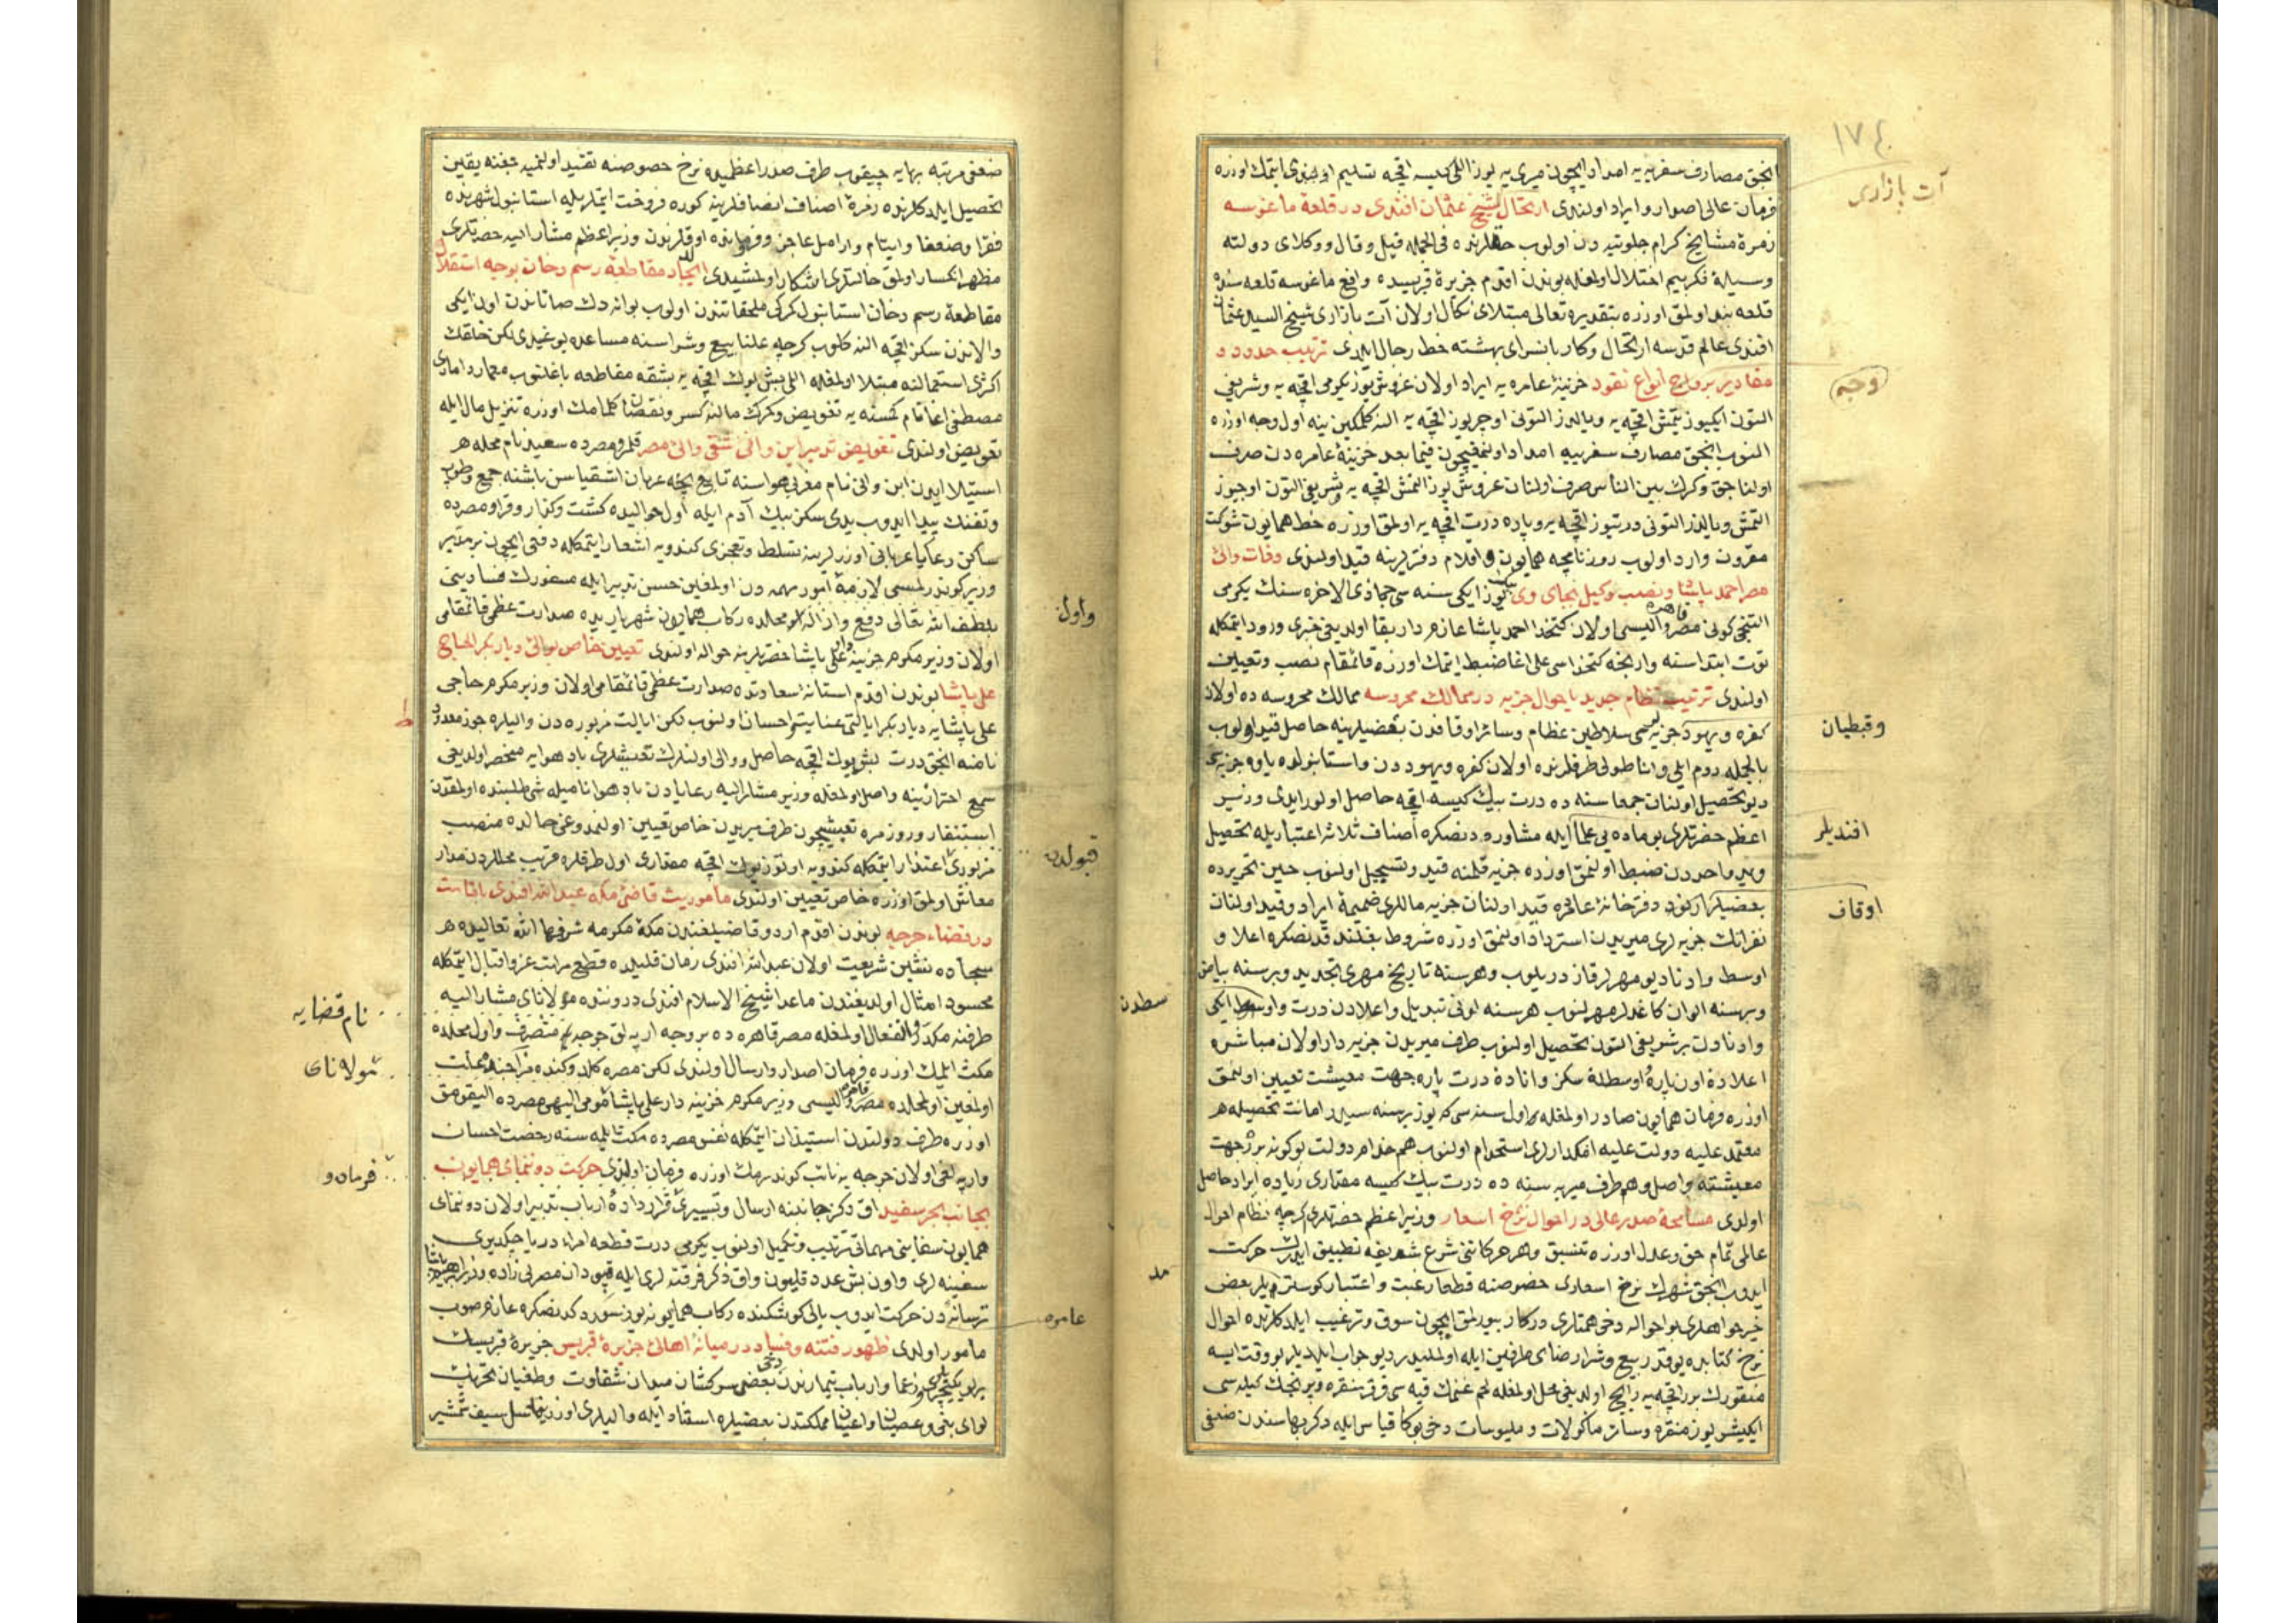 ١٧٤
آت بازاری
انجق مصارف سفریه یه امداد ایچون میری یه یوز اللی کیسه اقچه تسلیم
فرمان عالی اصدار و ایراد اولندی ارتحال شیخ عثمان افندی در قلعهٔ ماغوسه
زمرهٔ مشایخ کرام جلوتیه دن اولوب حقلرنده فی الجمله قیل و قال و وکلای دولته
وسیلهٔ اختلال اولمغله بوندن اقدم جزیرهٔ قبریسده واقع ماغوسه قلعه سنده
قلعه بند اولمق اوزره بتقدیره تعالی مبتلای نکال اولان آت بازاری شیخ السید عثمان
افندی عالم قدسه ارتحال و کاربانسرای بهشته حط رحال ایلدی ترتیب حدود و
مقادیر برواج انواع نقود خزینهٔ عامره یه ایراد اولان غروش یوز یکرمی اقچه یه و شریفی
التون ایکیوز یتمش اقچه یه و یالدز التونی اوچر یوز اقچه یه النه کلمکین ینه اول وجه اوزره
النوب انجق مصارف سفریه امداد اولنمغیچون فیما بعد خزینهٔ عامره دن صرف
اولناجق و کرک بین الناس صرف اولنان غروش یوز التمش اقچه یه و شریفی التون اوچیوز
التمش و یالدز التونی درتیوز اقچه یه و پاره درت اقچه یه اولمق اوزره خط همایون شوکت
مقرون وارد اولوب روزنامچه همایون و اقلام دفترلرینه قید اولندی وفات والئ
مصر احمد پاشا و نصب وکیل بجای وی بیک یوز ایکی سنه سی جماذی الاخره سنک یکرمی
التنجی کونی مصر قاهره والیسی اولان کتخدا احمد پاشا عازم دار بقا اولدیغی خبری ورود ایتمکله
توت ابتداسنه وارنجه کتخداسی علی اغا ضبط ایتمک اوزره قائمقام نصب و تعیین
اولندی ترتیب نظام جدید باحوال جزیه در ممالک محروسه ممالک محروسه ده اولان
کفره و یهود جزیه سی سلاطین عظام و سائر اوقافدن بعضیلرینه حاصل قید اولوب
بالجمله روم ایلی و اناطولی طرفلرنده اولان کفره و یهود دن و استانبولده یاوه جزیه سی
دیو تحصیل اولنان جمعا سنه ده درت بیک کیسه اقچه حاصل اولور ایدی وزیر
اعظم حضرتلری بو ماده یی علما ایله مشاوره دنصکره اصناف ثلاثه اعتباریله تحصیل
و ید واحددن ضبط اولنمق اوزره جزیه قلمنه قید و تسجیل اولنوب حین تحریرده
دفترخانهٔ عامره قید اولنان جزیه ماللری ضمیمهٔ ایراد و قید اولنان
نفراتک جزیه لری میریدن استرداد اولنمق اوزره شروط بغلند قدنصکره اعلا و
اوسط و ادنا دیو مهرلر قازدریلوب و هر سنه تاریخ مهری تجدید و بر سنه بیاض
و بر سنه الوان کاغدلر مهرلنوب هر سنه لونی تبدیل و اعلادن درت و اوسطدن ایکی
و ادنادن بر شریفی التون تحصیل اولنوب طرف میریدن جزیه دار اولان مباشره
اعلاده اون پاره و اوسطده سکز و اناده درت پاره جهت معیشت تعیین اولنمق
اوزره فرمان همایون صادر اولمغله اول سنه سی که یوز بر سنه سیدر امانت تحصیله هر
معتمد علیه دولت علیه امکدارلری استخدام اولنوب هم خدام دولت بوکونه بر جهت
معیشته واصل و هم طرف میریه سنه ده درت بیک کیسه مقداری زیاده ایراد حاصل
اولدی مسامحهٔ صدر عالی در احوال نرخ اسعار وزیر اعظم حضرتلری کرچه نظام احوال
عالمی تمام حق و عدل اوزره تنسیق و هر حرکاتنی شرع شریفه تطبیق ایدرک حرکت
ایدوب انجق شهرک نرخ اسعاری خصوصنه قطعا رغبت و اعتبار کوسترمدیلر بعض
خیرخواهلری بو احواله دخی همتلری درکار بیورلمق ایچون سوق و ترغیب ایلدکلرنده احوال
نرخ کتابده یوقدر بیع و شرا رضای طرفین ایله اولملیدر دیو جواب ایلدیلر بو وقت ایسه
منقورک بر اقچه یه رایج اولدیغی محل اولمغله لحم غنمک قیه سی قرق منقره و پرنجک کیله سی
ایکیشر یوز منقره و سائر ماکولات و ملبوسات دخی بوکا قیاس ایله دکر بهاسندن ضعفی
وجه
وقبطیان
افندیلر
اوقاف
سطدن
ضعفی مرتبه بهایه چیقوب طرف صدر اعظمیده نرخ خصوصنه تقید اولنمیه جغنه یقین
تحصیل ایلدکلرنده زمرهٔ اصناف انصافلرینه کوره فروخت ایتملریله استانبول شهرنده
فقرا و ضعفا و ایتام و ارامل عاجز و فرومانده اوقلرندن وزیر اعظم مشار الیه حضرتلری
مظهر انکسار اولمق حالتلری اشکار اولمشیدی ایجاد مقاطعهٔ رسم دخان بوجه استقلال
مقاطعهٔ رسم دخان استانبول کمرکی ملحقاتندن اولوب بوانه دک صاتاندن اون ایکی
والاندن سکز اقچه النه کلوب کرچه علنا بیع و شراسنه مساعده یوغیدی لکن خلقک
اکثری استعمالنه مبتلا اولمغله اللی بش یوک اقچه یه بشقه مقاطعه باغلنوب معمار دامادی
مصطفی اغا نام کمسنه یه تفویض و کمرک مالنه کسر و نقصان کلمامک اوزره تنزیل مال ایله
تفویض اولندی تفویض تدبیر ابن وافی شقی والئ مصر قلمرو مصرده سعید نام محله هر
استیلا ایدن ابن وافی نام مغربی هواسنه تابع نیجه عربان اشقیاسن باشنه جمع و طوپ
و تفنک پیدا ایدوب یدی سکز بیک آدم ایله اول حوالیده کشت و کذار و قرا و مصرده
ساکن رعایا عربانی اوزرلرینه تسلط و تعجزی کندویه اشعار ایتمکله دفعی ایچون بر مدبر
وزیر کوندرلمسی لازمهٔ امور مهمه دن اولمغین حسن تدبیر ایله مسفورک فسادینی
بلطف الله تعالی دفع و ازاله اول محلده رکاب همایون شهریاریده صدارت عظمی قائمقامی
اولان وزیر مکرم خزینه دار علی پاشا حضرتلرینه حواله اولندی تعیین خاص بوالئ دیاربکر الحاج
علی پاشا بوندن اقدم استانهٔ سعادتده صدارت عظمی قائمقامی اولان وزیر مکرم حاجی
علی پاشایه دیاربکر ایالتی عنایت و احسان اولنوب لکن ایالت مزبوره دن والیلره جوز معدود
نامنه انجق درت بش یوک اقچه حاصل و والی اولنلرک تعیشلری باد هوایه منحصر اولدیغی
سمع احترازینه واصل اولمغله وزیر مشار الیه رعایادن باد هوا نامیله شی طلبنده اولمقدن
استنفار و روزمره تعیشیچون طرف میریدن خاص تعیین اولنمدوغی حالده منصب
مزبوری اعتذار ایتمکله کندویه اوتوز یوک اقچه مقداری اول طرفلره قریب محللردن مدار
معاش اولمق اوزره خاص تعیین اولندی ماموریت قاضئ مکه عبد الله افندی باقامت
در قضاء جرجه بوندن اقدم اردو قاضیلغندن مکهٔ مکرمه شرفها الله تعالیده هر
سجاده نشین شریعت اولان عبد الله افندی زمان قلیلده قطع مراتب عز و اقبال ایتمکله
محسود امثال اولدیغندن ماعدا شیخ الاسلام افندی دروننده مولانای مشار الیه
طرفنه مکدر و انفعال اولمغله مصر قاهره ده بر وجه ارپه لق جرجه یه متصرف و اول محلده
مکث ایلمک اوزره فرمان اصدار و ارسال اولندی لکن مصره کلد وکنده
اولمغین اولمحلده مصر قاهره والیسی وزیر مکرم خزینه دار علی پاشا مومی الیهی مصرده الیقومق
اوزره طرف دولتدن استیذان ایتمکله نفس مصرده مکث ایلمسنه رخصت احسان
وارپه لغی اولان جرجه یه نائب کوندرمک اوزره فرمان اولندی حرکت دوننمای همایون
بجانب بحر سفید اق دکز جانبنه ارسال و تسییری قرارداده ارباب تدبیر اولان دوننمای
همایون سفاینی مهماتی ترتیب و تکمیل اولنوب یکرمی درت قطعه امراء دریا چکدیری
سفینه لری و اون بش عدد قلیون و اق دکز فرقته لری ایله قپودان مصرلی زاده وزیر ابراهیم پاشا
ترسانه دن حرکت ایدوب یالی کوشکنده رکاب همایونه یوز سورد کدنصکره عازم صوب
مامور اولدی ظهور فتنه و فساد در میانهٔ اهالئ جزیرهٔ قبریس جزیرهٔ قبریسک
یرلو یکیچریلری و زعما و ارباب تیمارندن دخی بعضی سرکشان میدان شقاوت و طغیان تحریک
لوای بغی و عصیان و اعیان مملکتدن بعضیلره استناد ایله والیلری اوزرینه سل سیف شمشیر
واول
قبولدن
عامره
نام قضایه
مولانای
فرماندو